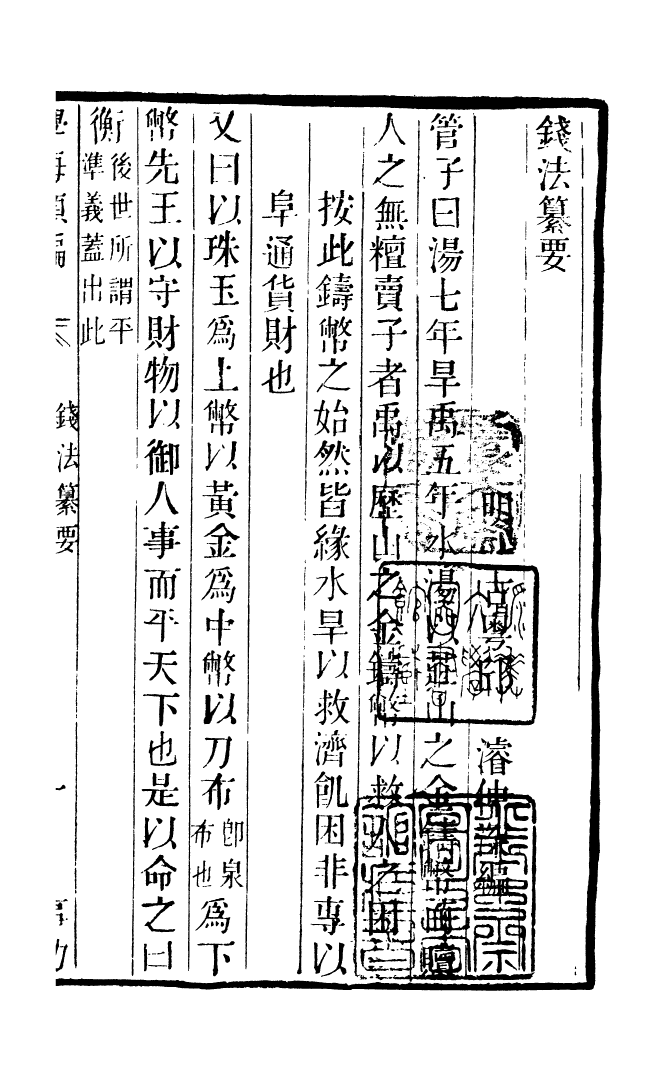 錢法纂要
明 邱濬仲深編
管子曰湯七年旱禹五年水湯以莊山之金鑄幣而贖
人之無𥼷賣子者禹以歷山之金鑄幣以救人之困
按此鑄幣之始然皆緣水旱以救濟飢困非專以
阜通貨財也
又曰以珠玉爲上幣以黃金爲中幣以刀布卽泉布也爲下
幣先王以守財物以御人事而平天下也是以命之曰
衡後世所謂平準義蓋出此
學海類編 錢法纂要 一